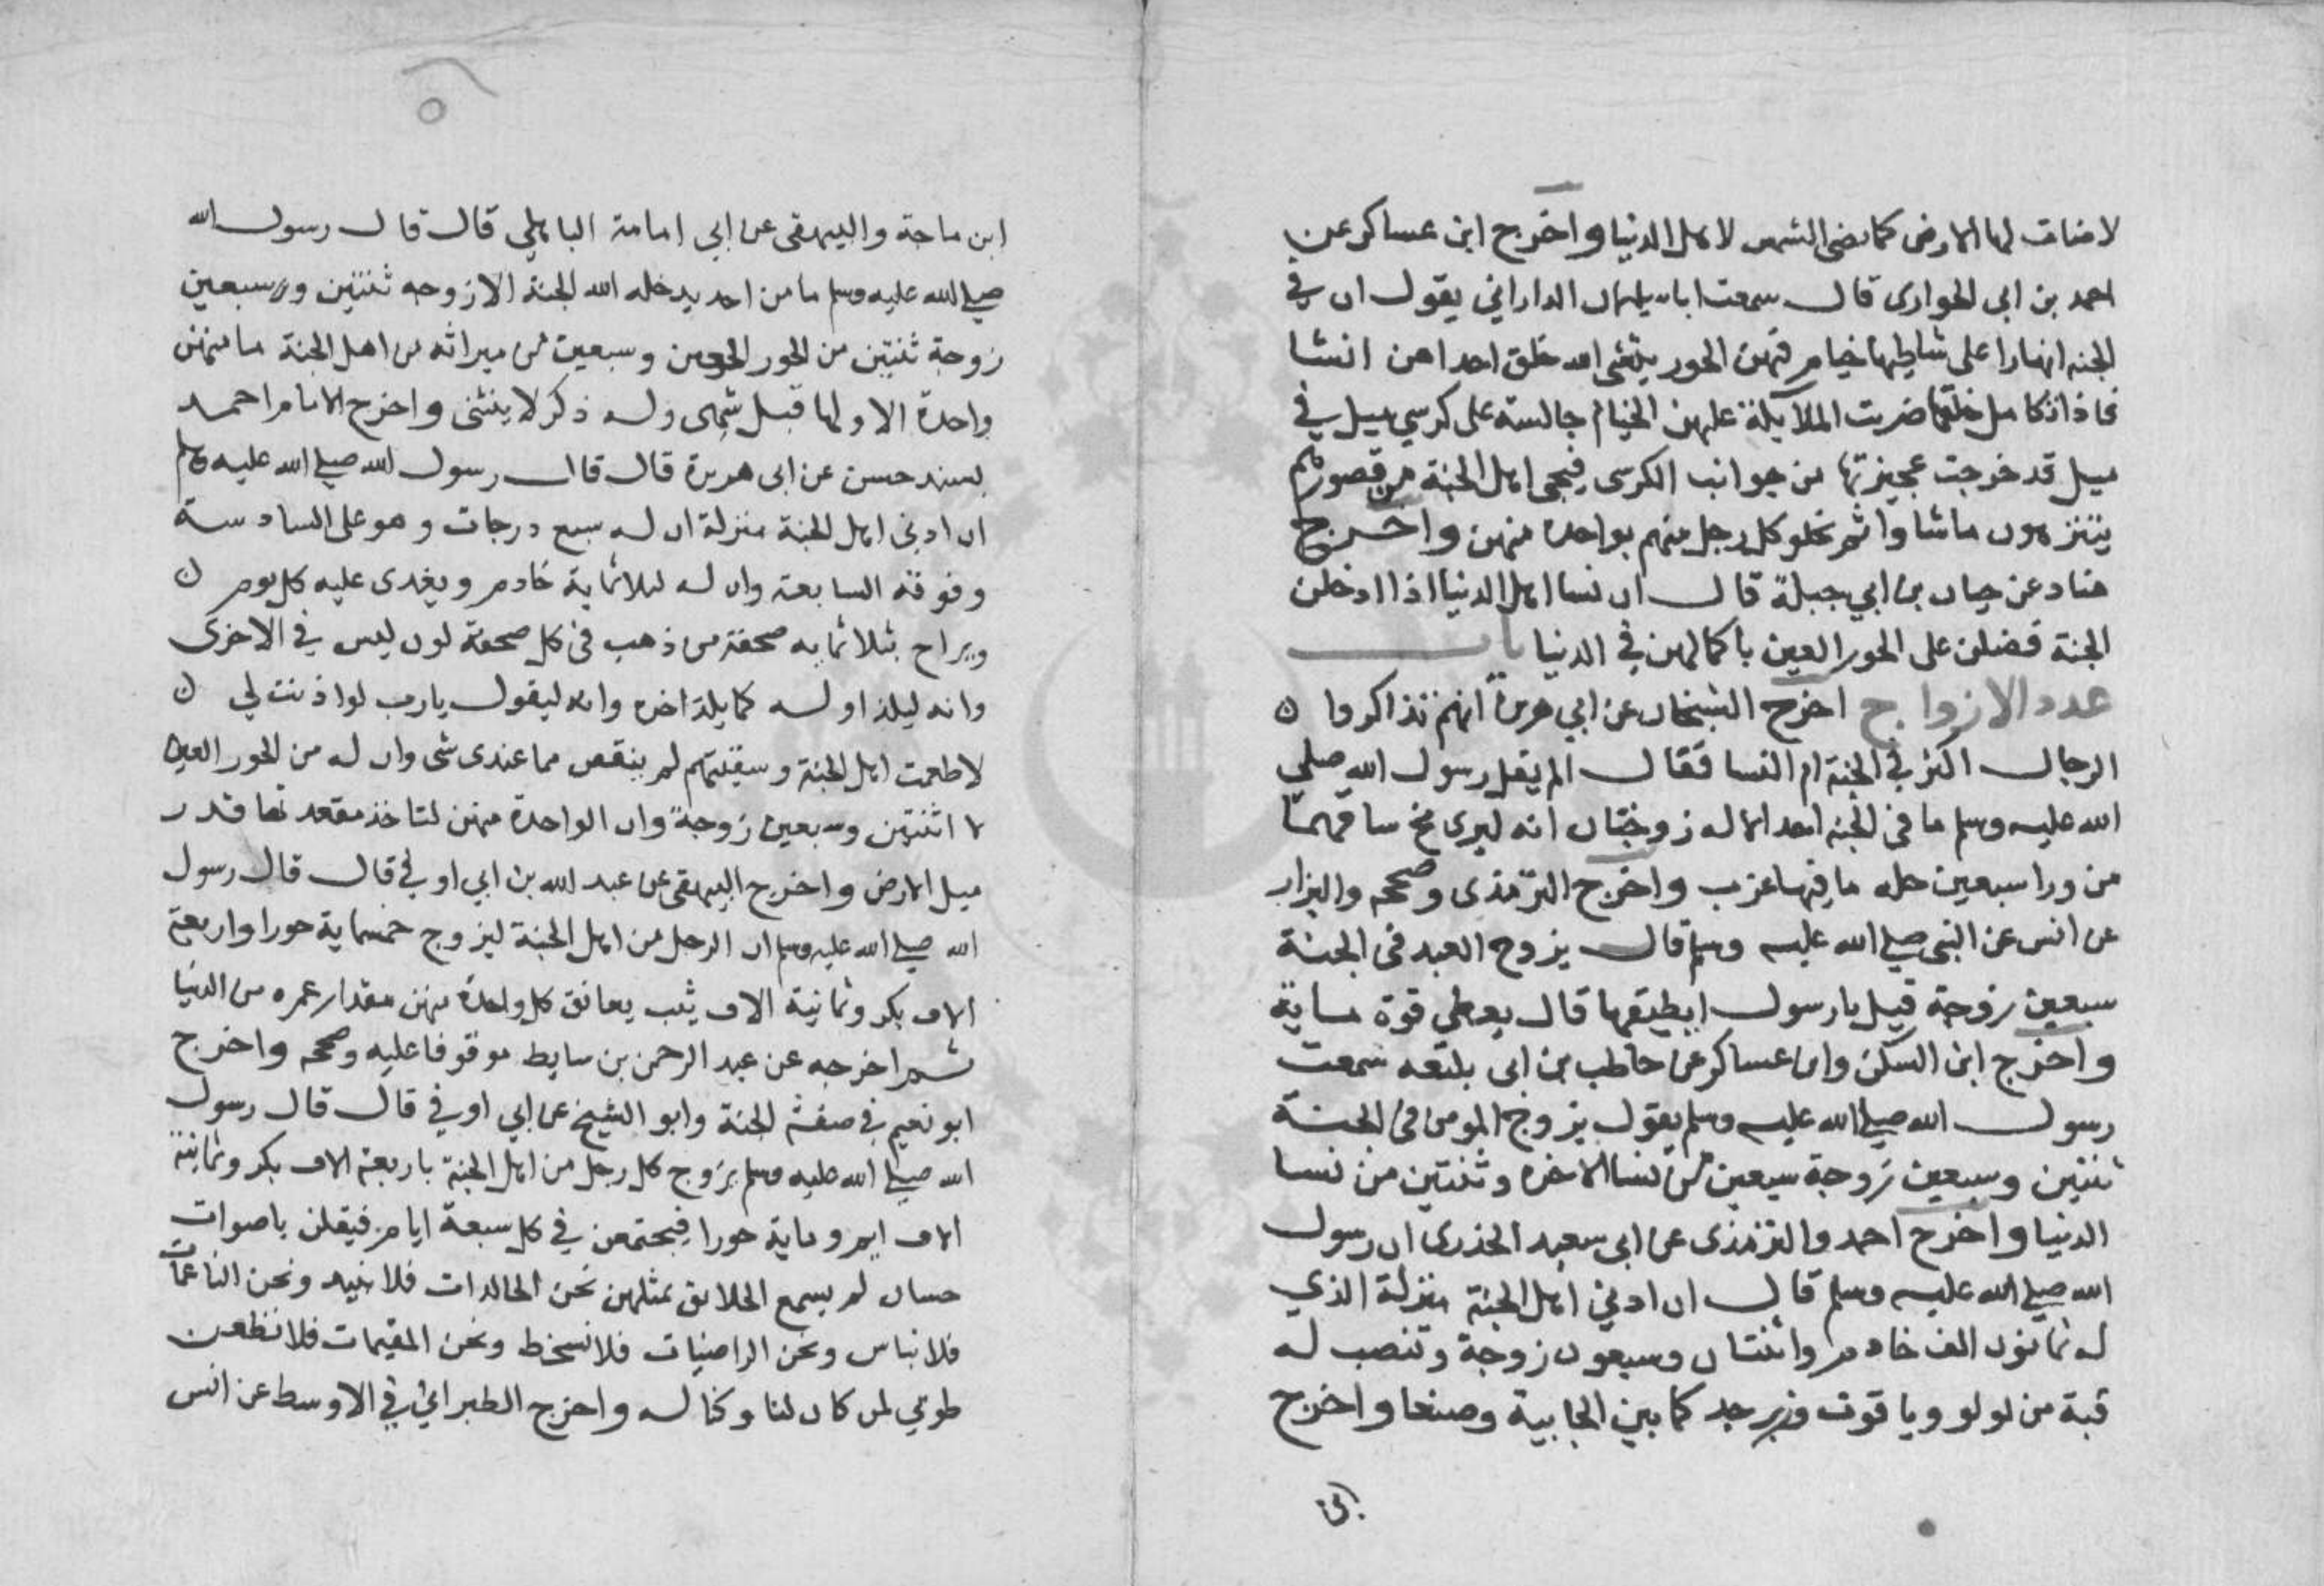 لاضات لها الارض كما تضى الشمس لاهل الدنيا واخرج ابن عساكر عن
احمد بن ابى الحوارى قال سمعت ابا سليمان الداراني يقول ان في
الجنه انهارا على شاطيها خيام فيهن الحور ينشى الله خلق احداهن انشا
فاذا تكامل خلقها ضربت الملايكة عليهن الخيام جالسة على كرسي ميل في
ميل قد خرجت عجيزتها من جوانب الكرسى فيجى اهل الجنة من قصورهم
يتنزهون ماشاوا ثم يخلو كل رجل منهم بواحدة منهن واخرج
هناد عن حيان بن ابي جبلة قال ان نسا اهل الدنيا اذا ادخلن
الجنة فضلن على الحور العين باعمالهن في الدنيا باب
عدد الازواج اخرج الشيخان عن ابي هريرة انهم تذاكروا ه
الرجال اكثر في الجنة ام النسا فقال الم يقل رسول الله صلي
الله عليه وسلم ما فى الجنه احد الا له زوجتان انه ليرى مخ ساقهما
من ورا سبعين حله ما فيها عزب واخرج الترمذى وصححه والبزار
عن انس عن النبى صلى الله عليه وسلم قال يزوج العبد فى الجنة
سبعين زوجة قيل يا رسول ايطيقها قال يعطي قوة ماية
واخرج ابن السكن وابن عساكر عن حاطب بن ابى بلتعه سمعت
رسول الله صلى الله عليه وسلم يقول يزوج المومن فى الجنة
ثنتين وسبعين زوجة سبعين من نسا الاخره وثنتين من نسا
الدنيا واخرج احمد والترمذى عن ابى سعيد الخدرى ان رسول
الله صلى الله عليه وسلم قال ان ادني اهل الجنة منزلة الذي
له ثمانون الف خادم واثنتان وسبعون زوجة وتنصب له
قبة من لولو وياقوت وزبرجد كما بين الجابية وصنعا واخرج
ابن
ابن ماجة والبيهقى عن ابي امامة الباهلي قال قال رسول الله
صلى الله عليه وسلم ما من احد يدخله الله الجنة الا زوجه ثنتين وسبعين
زوجة ثنتين من الحور العين وسبعين من ميراثه من اهل الجنة ما منهن
واحدة الا ولها قبل شهى وله ذكر لا ينثنى واخرج الامام احمد
بسند حسن عن ابى هريرة قال قال رسول الله صلى الله عليه وسلم
ان ادنى اهل الجنة منزلة ان له سبع درجات وهو على السادسة
وفوقه السابعة وان له لثلاثماية خادم ويغدى عليه كل يوم ن
ويراح بثلاثمايه صحفة من ذهب فى كل صحفة لون ليس في الاخرى
وانه ليلذ اوله كما يلذ اخره وانه ليقول يا رب لو اذنت لي ن
لاطعمت اهل الجنة وسقيتهم لم ينقص مما عندى شى وان له من الحور العين
لاثنتين وسبعين زوجة وان الواحدة منهن لتاخذ مقعدتها قدر
ميل الارض واخرج البيهقى عن عبد الله بن ابي اوفي قال قال رسول
الله صلى الله عليه وسلم ان الرجل من اهل الجنة ليزوج خمسماية حورا واربعة
الاف بكر وثمانية الاف ثيب يعانق كل واحدة منهن مقدار عمره من الدنيا
ثم اخرجه عن عبد الرحمن بن سابط موقوفا عليه وصححه واخرج
ابو نعيم في صفة الجنة وابو الشيخ عن ابي اوفي قال قال رسول
الله صلى الله عليه وسلم يزوج كل رجل من اهل الجنة باربعة الاف بكر وثمانية
الاف ايم وماية حورا فيجتمعن في كل سبعة ايام فيقلن باصوات
حسان لم يسمع الخلايق بمثلهن نحن الخالدات فلا نبيد ونحن الناعمات
فلا نباس ونحن الراضيات فلا نسخط ونحن المقيمات فلا نظعن
طوبي لمن كان لنا وكنا له واخرج الطبراني في الاوسط عن انس